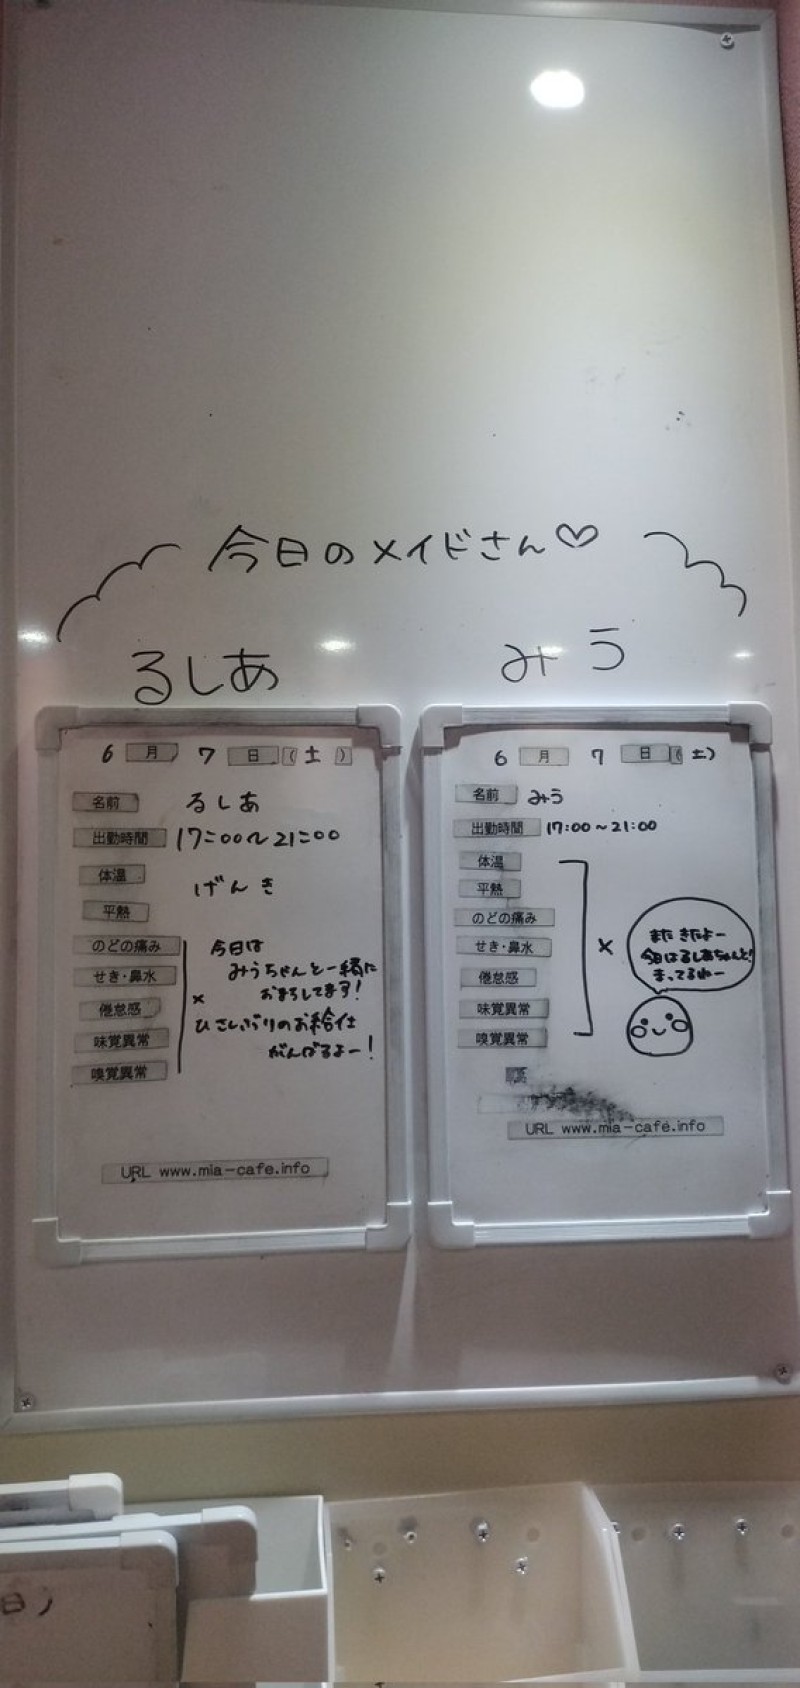 今日のメイドさん♡
るしあ
みう
6 月 7 日 (土)
名前 るしあ
出勤時間 17:00~21:00
体温
げんき
平熱
のどの痛み
せき・鼻水
倦怠感
味覚異常
嗅覚異常
×
今日は
みうちゃんと一緒に
おまちしてます!
ひさしぶりのお給仕
がんばるよー!
URL www.mia-cafe.info
6 月 7 日 (土)
名前 みう
出勤時間 17:00~21:00
体温
平熱
のどの痛み
せき・鼻水
倦怠感
味覚異常
嗅覚異常
×
また きたよー
今日はるしあちゃんと!
まってるねー
URL www.mia-cafe.info
日)